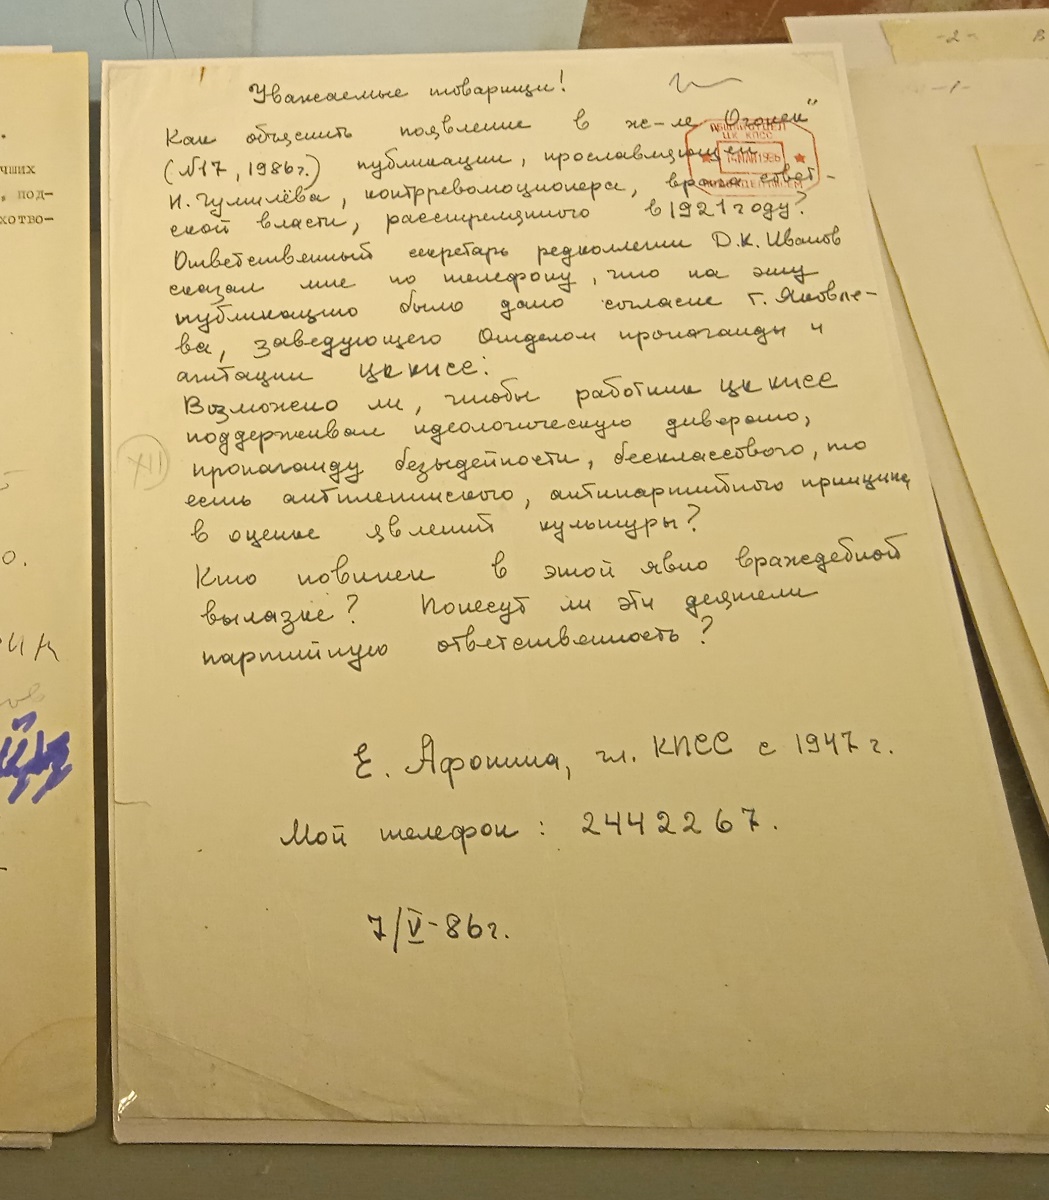 Уважаемые товарищи!
Как объяснить появление в ж-ле „Огонек"
(№17, 1986г.) публикации, прославляющей
Н. Гумилёва, контрреволюционера, врага совет-
ской власти, расстрелянного в 1921 году?
Ответственный секретарь редколлегии Д.К. Иванов
сказал мне по телефону, что на эту
публикацию было дано согласие т. Яковле-
ва, заведующего Отделом пропаганды и
агитации ЦК КПСС.
Возможно ли, чтобы работник ЦК КПСС
поддерживал идеологическую диверсию,
пропаганду безыдейности, бесклассового, то
есть антиленинского, антипартийного принципа
в оценке явлений культуры?
Кто повинен в этой явно враждебной
вылазке? Понесут ли эти деятели
партийную ответственность?
Е. Афонина, чл. КПСС с 1947 г.
Мой телефон: 2442267.
7/V-86г.
XII
ЦК КПСС
14 МАЙ 1986
чших
, под-
хотво-
-2-
В
-1-